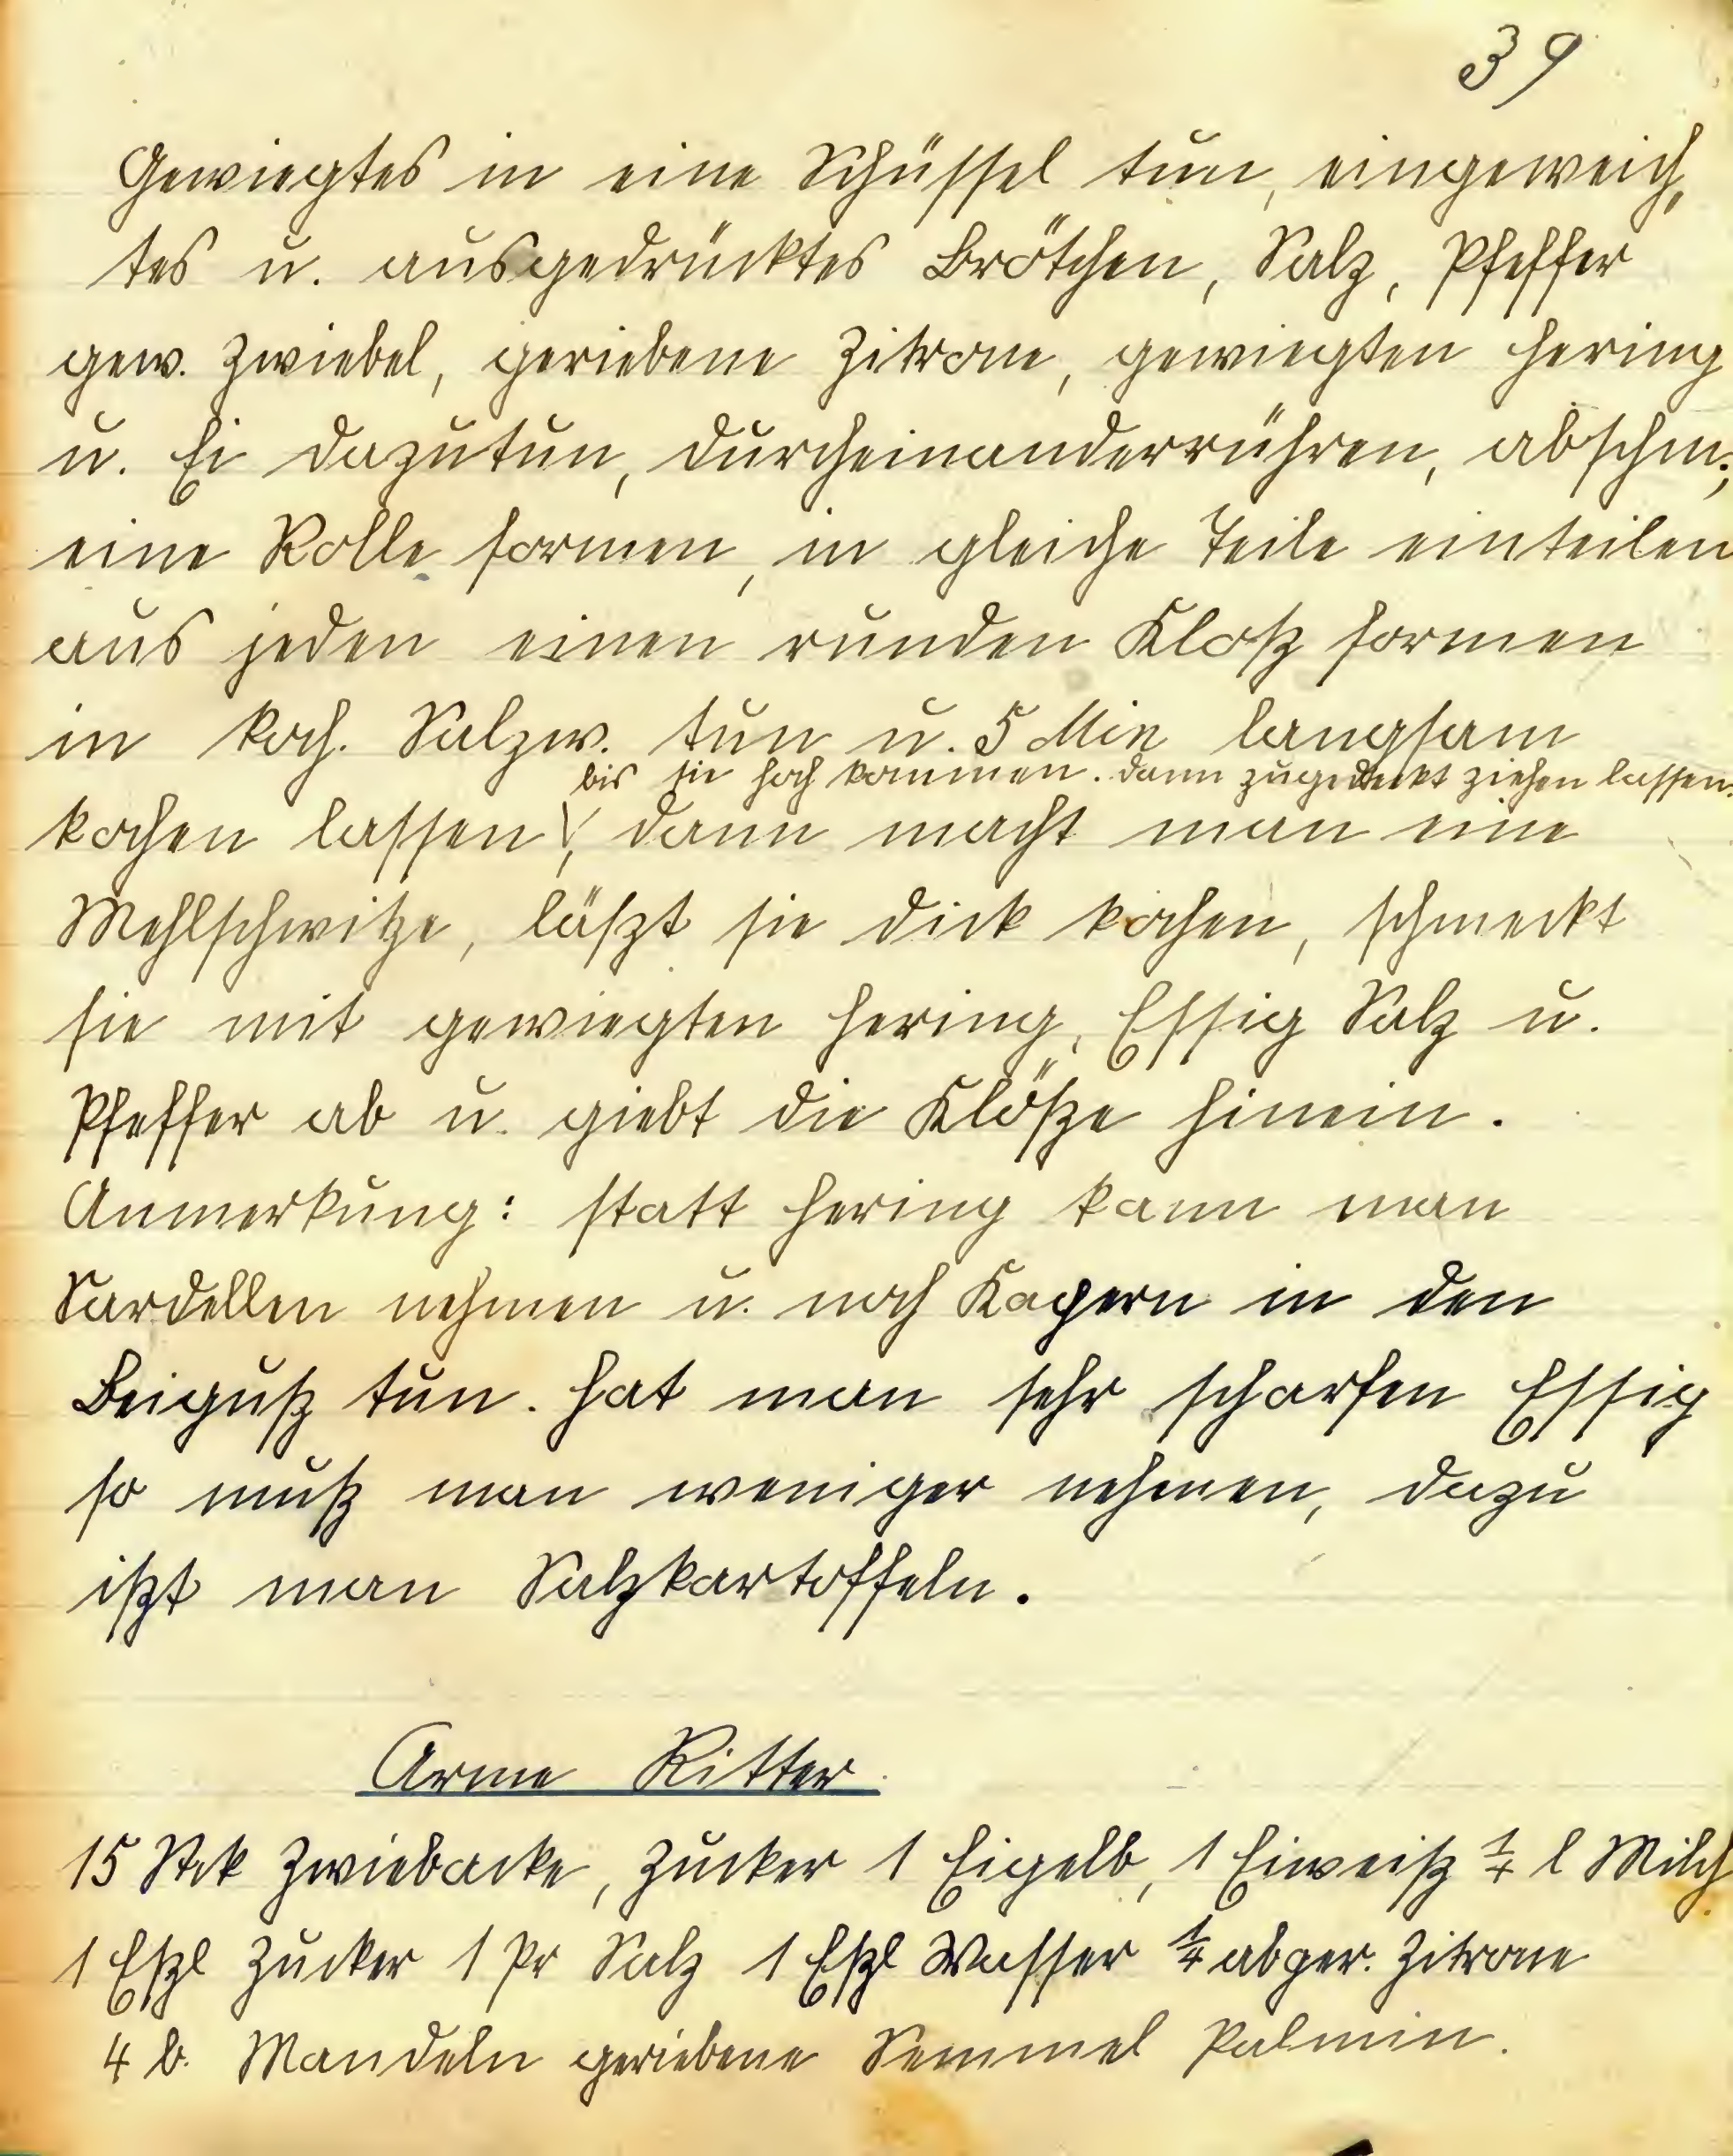 39
Gewiegtes in eine Schüssel tun, eingeweich„
tes u. ausgedrücktes Brötchen, Salz, Pfeffer
gew. Zwiebel, geriebene Zitrone, gewiegten Hering
u. Ei dazutun, durcheinanderrühren, abschm.;
eine Rolle formen, in gleiche Teile einteilen
aus jeden einen runden Kloß formen
in koch. Salzw. tun u. 5 Min langsam
bis sie hoch kommen. dann zugedeckt ziehen lassen.
kochen lassen, dann macht man eine
Mehlschwitze, läßt sie dick kochen, schmeckt
sie mit gewiegten Hering, Essig Salz u.
Pfeffer ab u. giebt die Klöße hinein.
Anmerkung: statt Hering kann man
Sardellen nehmen u. noch Kapern in den
Beiguß tun. Hat man sehr scharfen Essig
so muß man weniger nehmen, dazu
ißt man Salzkartoffeln.
Arme Ritter
15 Stck Zwiebacke, Zucker 1 Eigelb, 1 Eiweiß ¼ l Milch
1 Eßl Zucker 1 Pr Salz 1 Eßl Wasser ¼ abger. Zitrone
4 b. Mandeln geriebene Semmel Palmin.